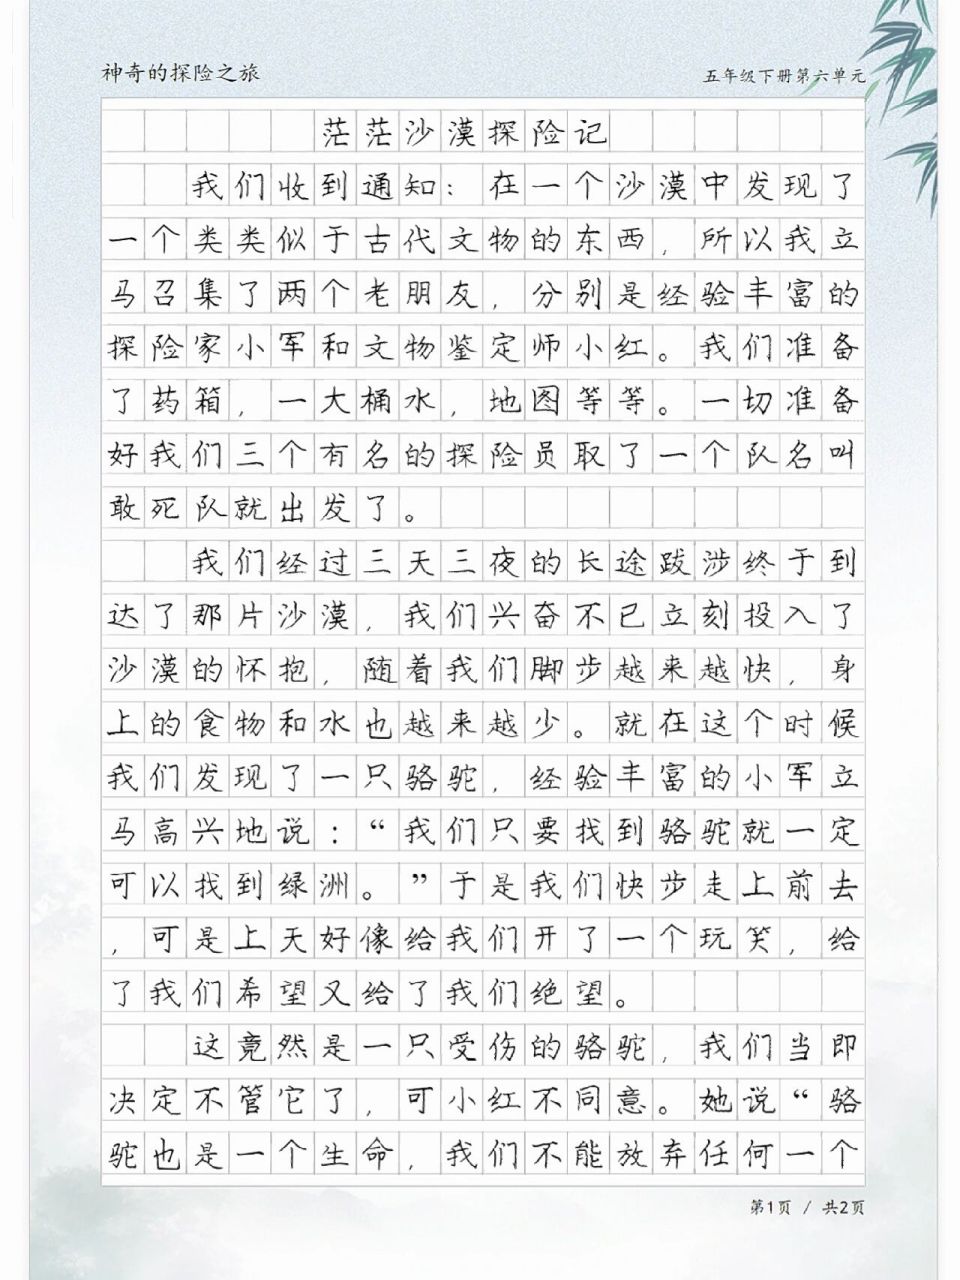 神奇的探险之旅
五年级下册第六单元
茫茫沙漠探险记
我们收到通知：在一个沙漠中发现了
一个类类似于古代文物的东西，所以我立
马召集了两个老朋友，分别是经验丰富的
探险家小军和文物鉴定师小红。我们准备
了药箱，一大桶水，地图等等。一切准备
好我们三个有名的探险员取了一个队名叫
敢死队就出发了。
我们经过三天三夜的长途跋涉终于到
达了那片沙漠，我们兴奋不已立刻投入了
沙漠的怀抱，随着我们脚步越来越快，身
上的食物和水也越来越少。就在这个时候
我们发现了一只骆驼，经验丰富的小军立
马高兴地说：“我们只要找到骆驼就一定
可以找到绿洲。”于是我们快步走上前去
，可是上天好像给我们开了一个玩笑，给
了我们希望又给了我们绝望。
这竟然是一只受伤的骆驼，我们当即
决定不管它了，可小红不同意。她说“骆
驼也是一个生命，我们不能放弃任何一个
第1页 / 共2页